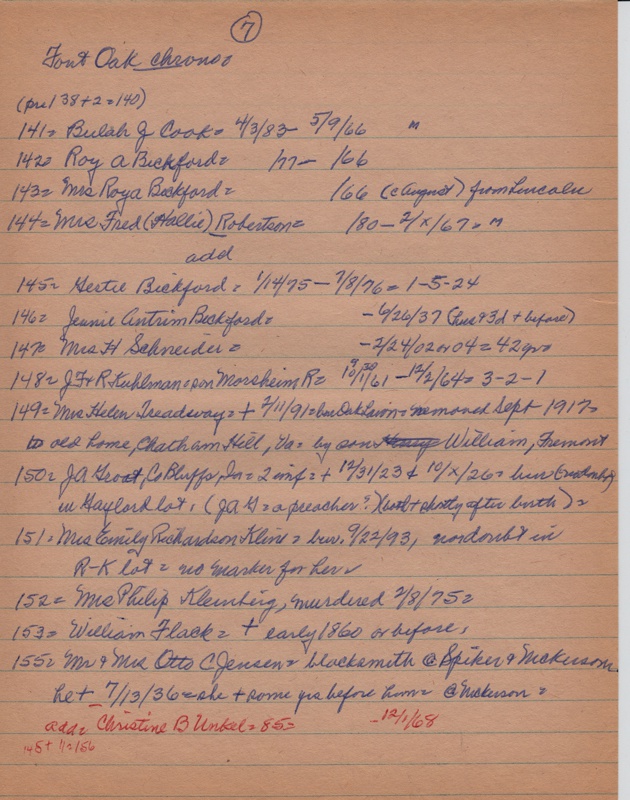 7
Font Oak chrono=
(pre 138+2=140)
141= Bulah J Cook= 4/3/83- 5/9/66 m
142= Roy A Bickford= /77- /66
143= Mrs Roy A Bickford= /66 (c August) from Lincoln
144= Mrs Fred (Hallie) Robertson= /80- 2/x/67= m
add
145= Gertie Bickford= 1/14/75- 7/8/76= 1-5-24
146= Jennie Antrim Bickford= -6/26/37 (hus 3d + before)
147= Mrs H Schneider= -2/24/02 or 04= 42 yrs
148= J F & R Kuhlman= son Morsheim R= 10/1/61 -12/2/64= 3-2-1
149= Mrs Helen Treadway= + 2/11/91= bur Oak = removed Sept 1917=
to old home, Chatham Hill, Va= by son William, Fremont
150= J A Groat, Co Bluffs, Ia= 2 inf= + 12/31/23 & 10/x/26= bur
in Gaylord lot. (J A G= a preacher?) (both + shortly after birth)=
151= Mrs Emily Richardson Kline= bur. 9/22/93, no doubt in
R-K lot= no marker for her=
152= Mrs Philip Kleinberg, murdered 2/8/75=
153= William Flack= + early 1860 or before.
155= Mr & Mrs Otto C Jensen= blacksmith @ Spiker & Nickerson
he + 7/13/36= she + some yrs before him= @ Nickerson=
add= Christine B Unkel= 85= -12/1/68
145+11=156